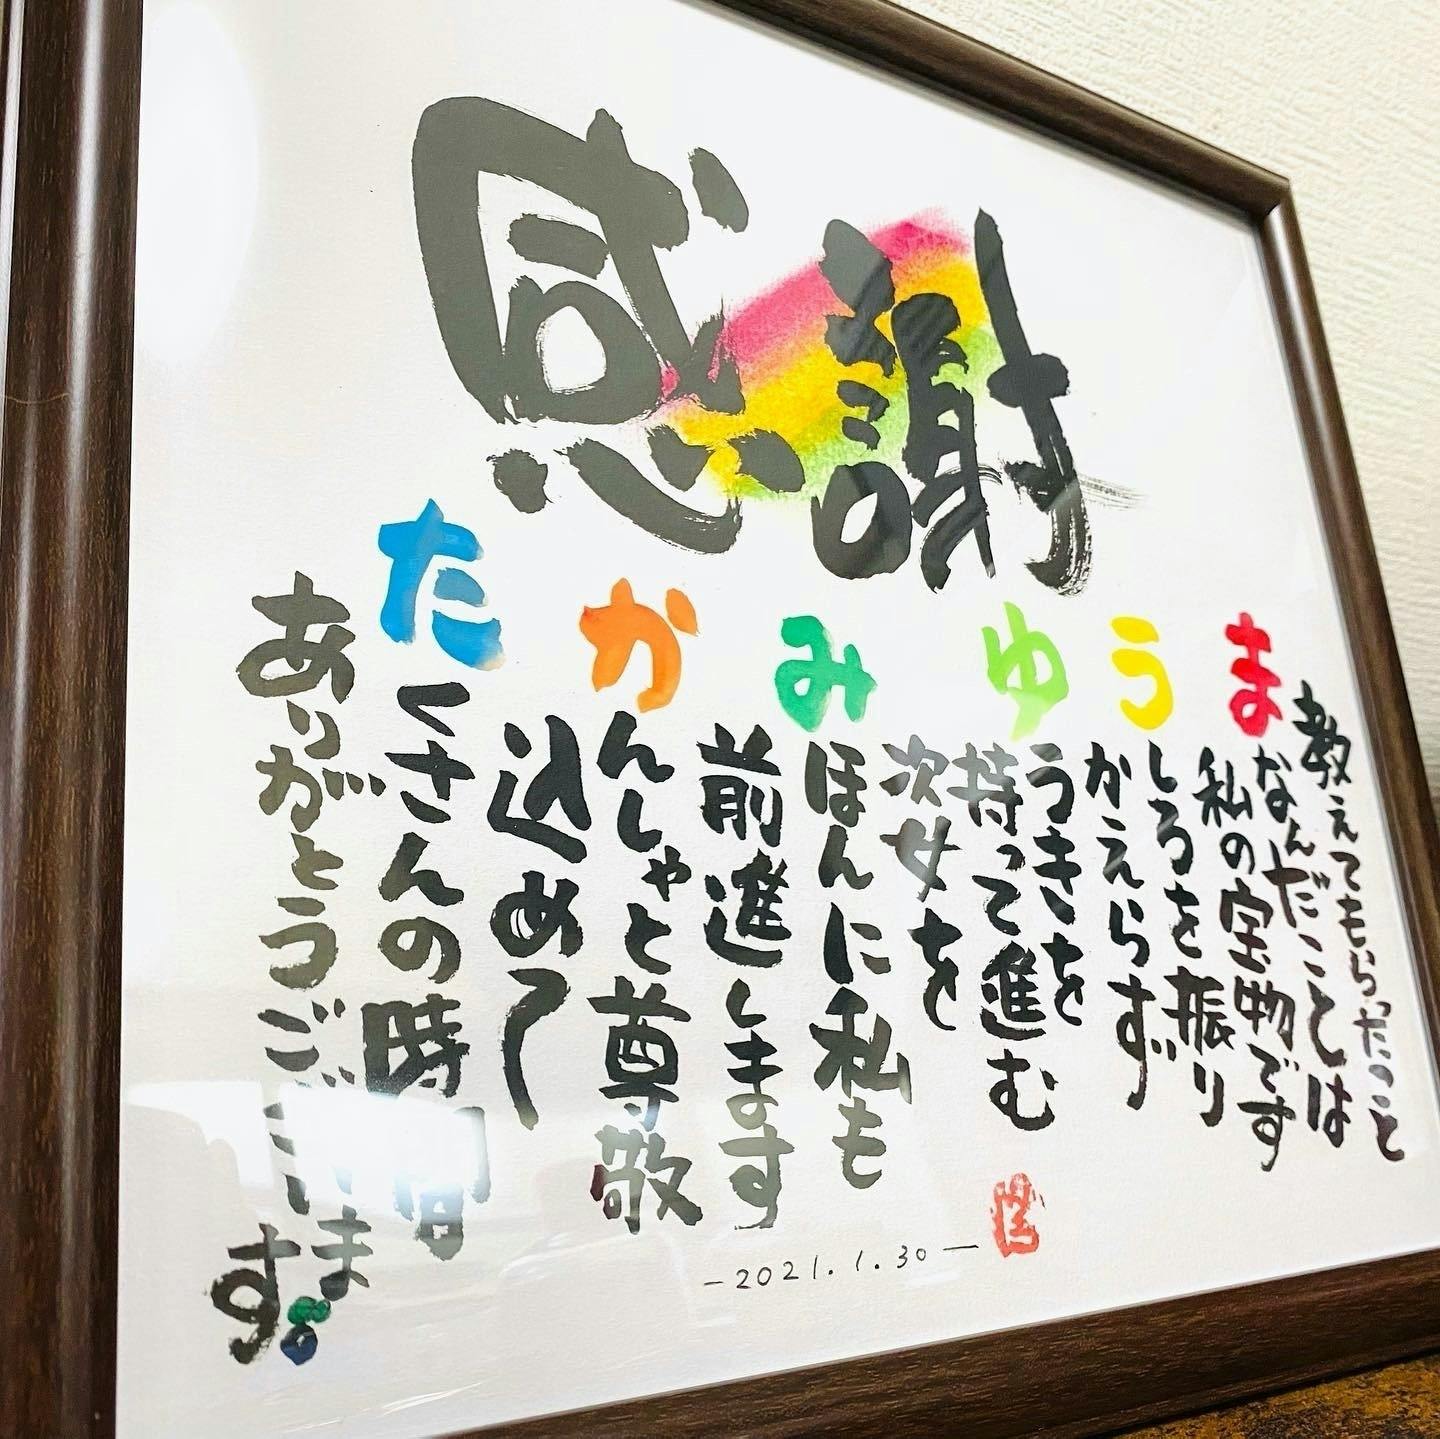 感謝
教えてもらったこと
まなんだことは
私の宝物です
うしろを振り
かえらず
ゆうきを
持って進む
次女を
みほんに私も
前進します
かんしゃと尊敬
込めて
たくさんの時間
ありがとうございます。
-2021.1.30-